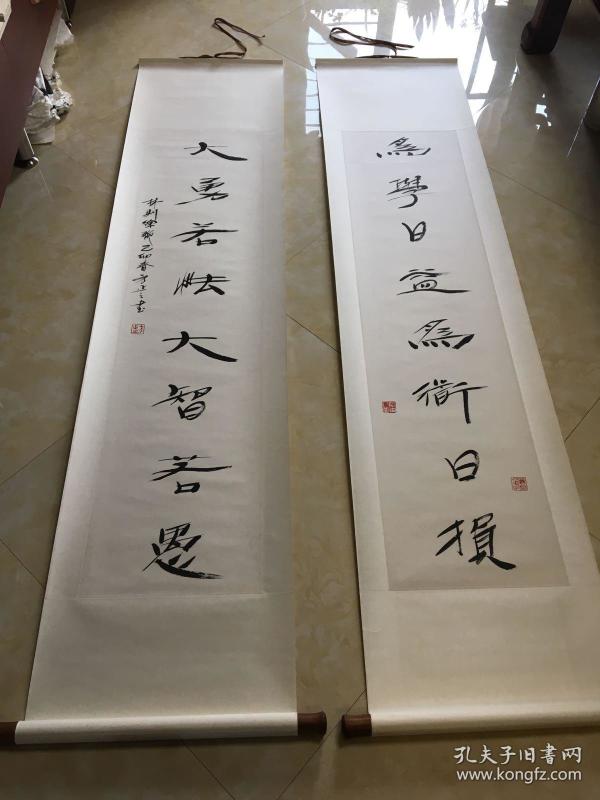 為學日益為衜日損
大勇若怯大智若愚
林则徐聯己卯春書
孔夫子旧书网
www.kongfz.com